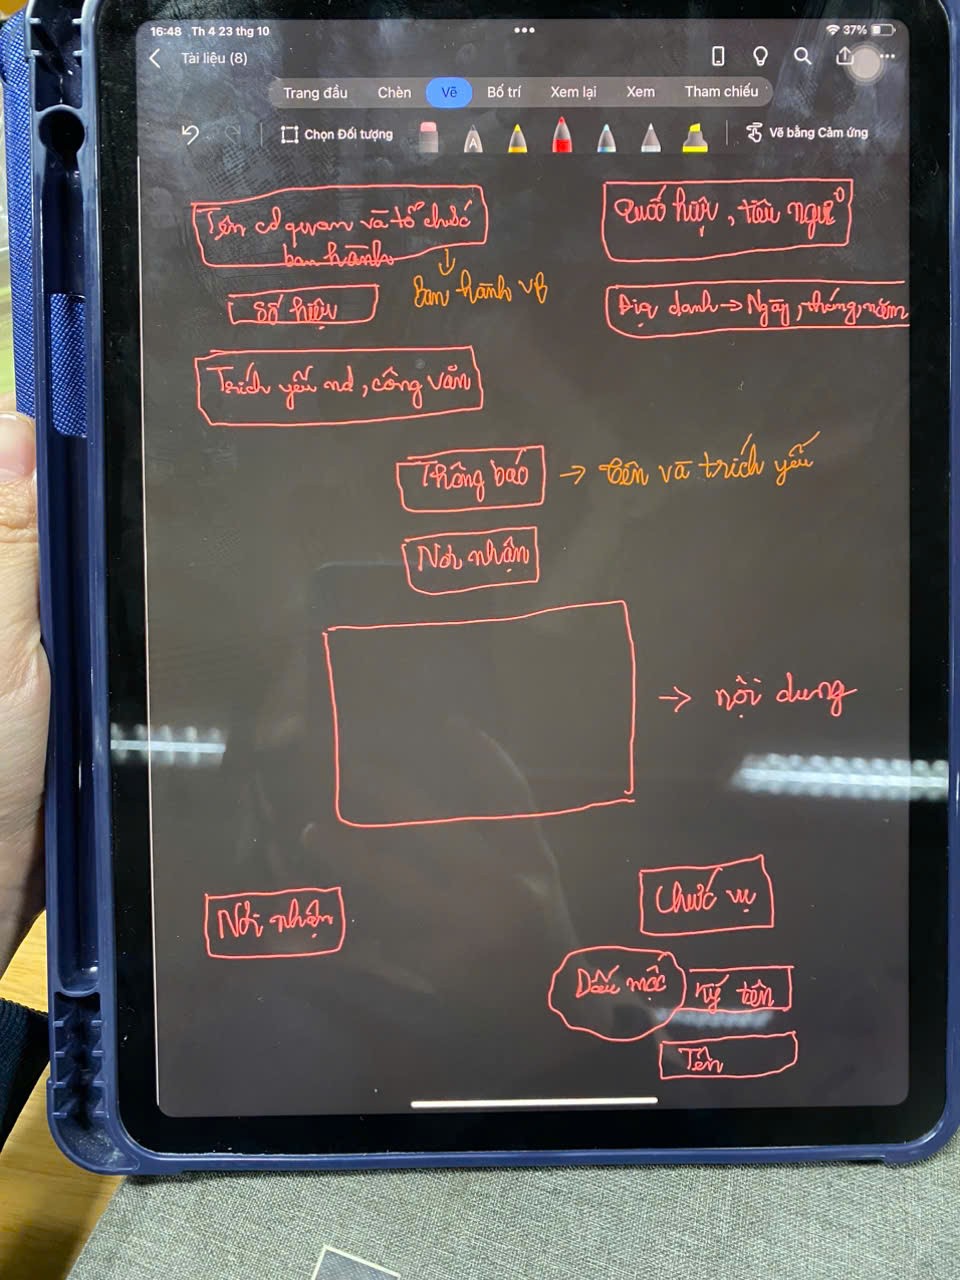 16:48 Th 4 23 thg 10
37%
Tài liệu (8)
Trang đầu Chèn Vẽ Bố trí Xem lại Xem Tham chiếu
Chọn Đối tượng
A
Vẽ bằng Cảm ứng
Tên cơ quan và tổ chức
ban hành
Quốc hiệu, tiêu ngữ
Ban hành VB
Số hiệu
Địa danh → Ngày, tháng, năm
Trích yếu nd, công văn
Thông báo → tên và trích yếu
Nơi nhận
→ nội dung
Chức vụ
Nơi nhận
Dấu mộc
ký tên
Tên